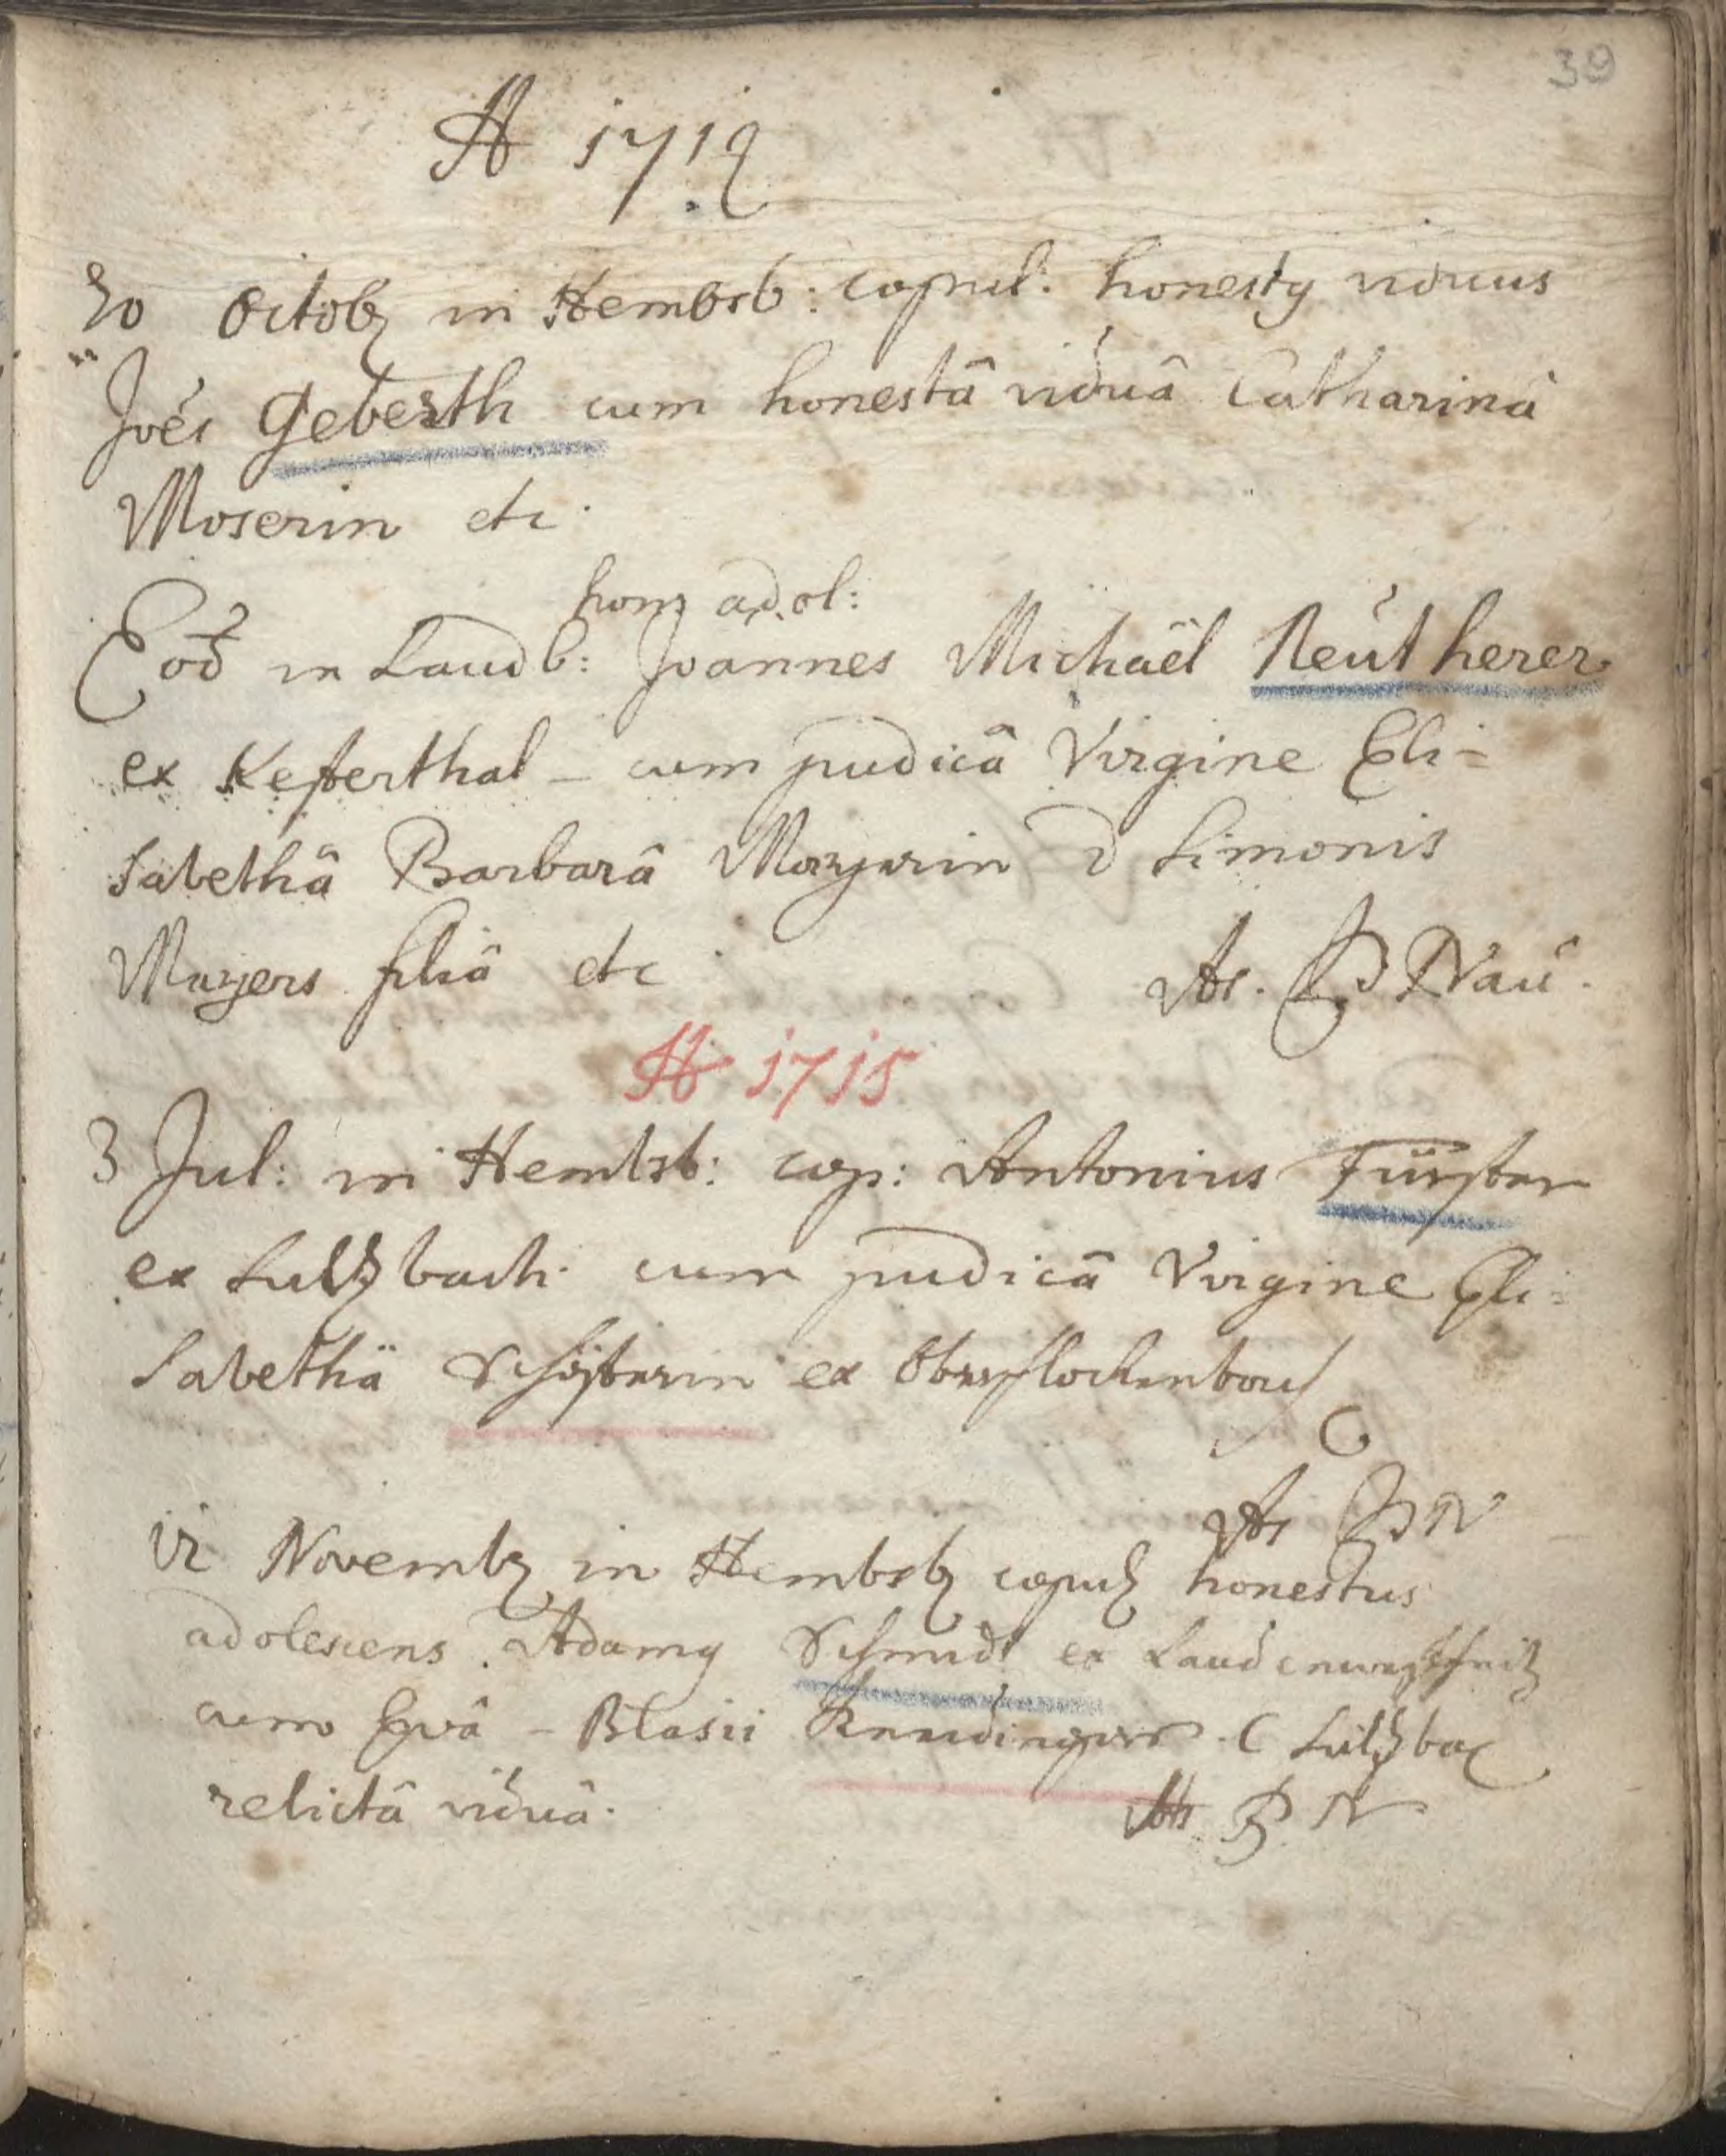 39
A 1712
30 Octob in Hembsb: copul: honesty viduus
Joës Geberth cum honestâ viduâ Catharinâ
Moserin etc.
hon adol:
Eod in Laudb: Joannes Michaël Reütherer
ex Keferthal - cum pudicâ Virgine Eli=
sabethâ Barbarâ Mayerin D Simonis
Mayers filiâ etc As. P Nau.
A 1715
3 Jul: in Hembsb: cop: Antonius Fürster
ex Sultzbach cum pudicâ Virgine Eli=
sabethâ ex Oberflockenbach
As P N
12 Novemb in Hembsb copul honestus
adolescens Adamy Schmidt ex
cum Evâ - Blasii Sultzbac
relictâ viduâ. As P N